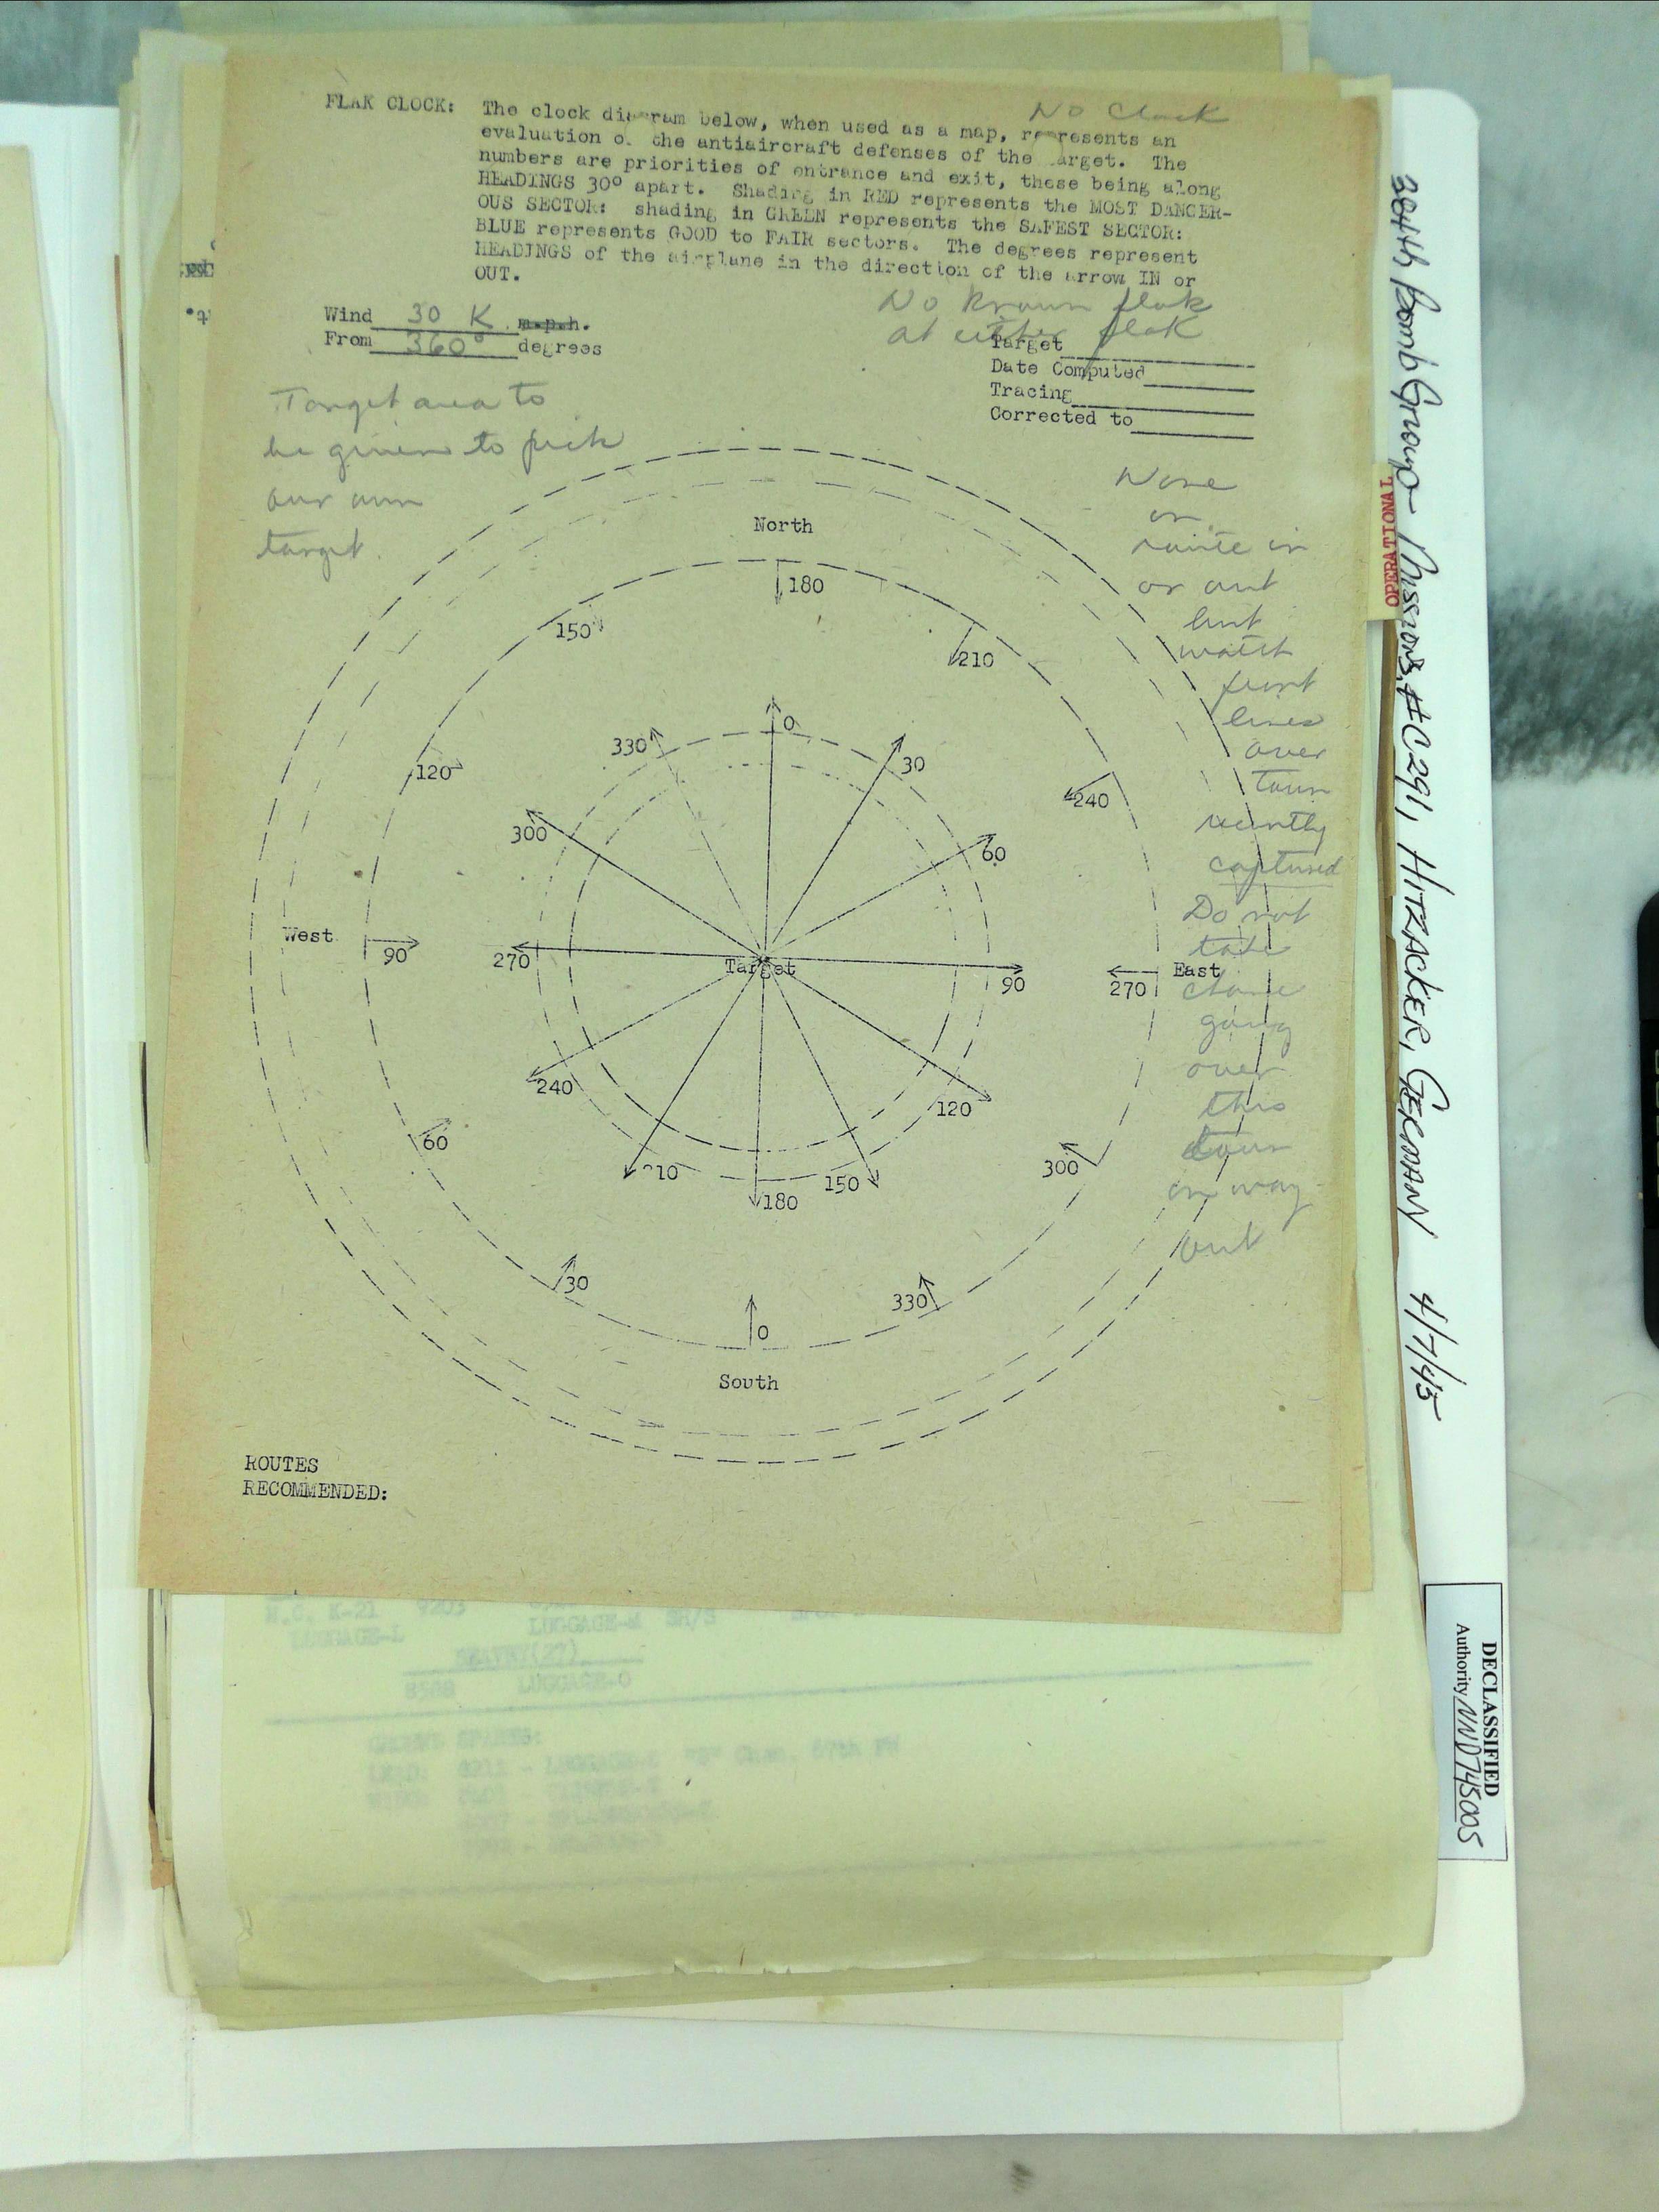 No Clock
FLAK CLOCK: The clock diagram below, when used as a map, represents an
evaluation of the antiaircraft defenses of the target. The
numbers are priorities of entrance and exit, these being along
HEADINGS 30° apart. Shading in RED represents the MOST DANGER-
OUS SECTOR: shading in GREEN represents the SAFEST SECTOR:
BLUE represents GOOD to FAIR sectors. The degrees represent
HEADINGS of the airplane in the direction of the arrow IN or
OUT.
No known flak
at either flak
Wind 30 K m.p.h.
From 360° degrees
Target
Date Computed
Tracing
Corrected to
Target area to
be given to pick
our own
target.
None
on
route in
or out
but
watch
front
lines
over
town
recently
captured
Do not
take
chance
going
over
this
town
on way
out
North
180
150
210
0
330
30
120
240
300
60
West
90
270
Target
90
270
East
240
120
60
210
150
300
180
30
330
0
South
ROUTES
RECOMMENDED:
N.C. K-21 9203
LUGGAGE-M SH/S
LUGGAGE-L
8508 LUGGAGE-O
384th Bomb Group Missions, #C291, HITZACKER, GERMANY 4/7/45
OPERATIONAL
DECLASSIFIED
Authority NND 745005